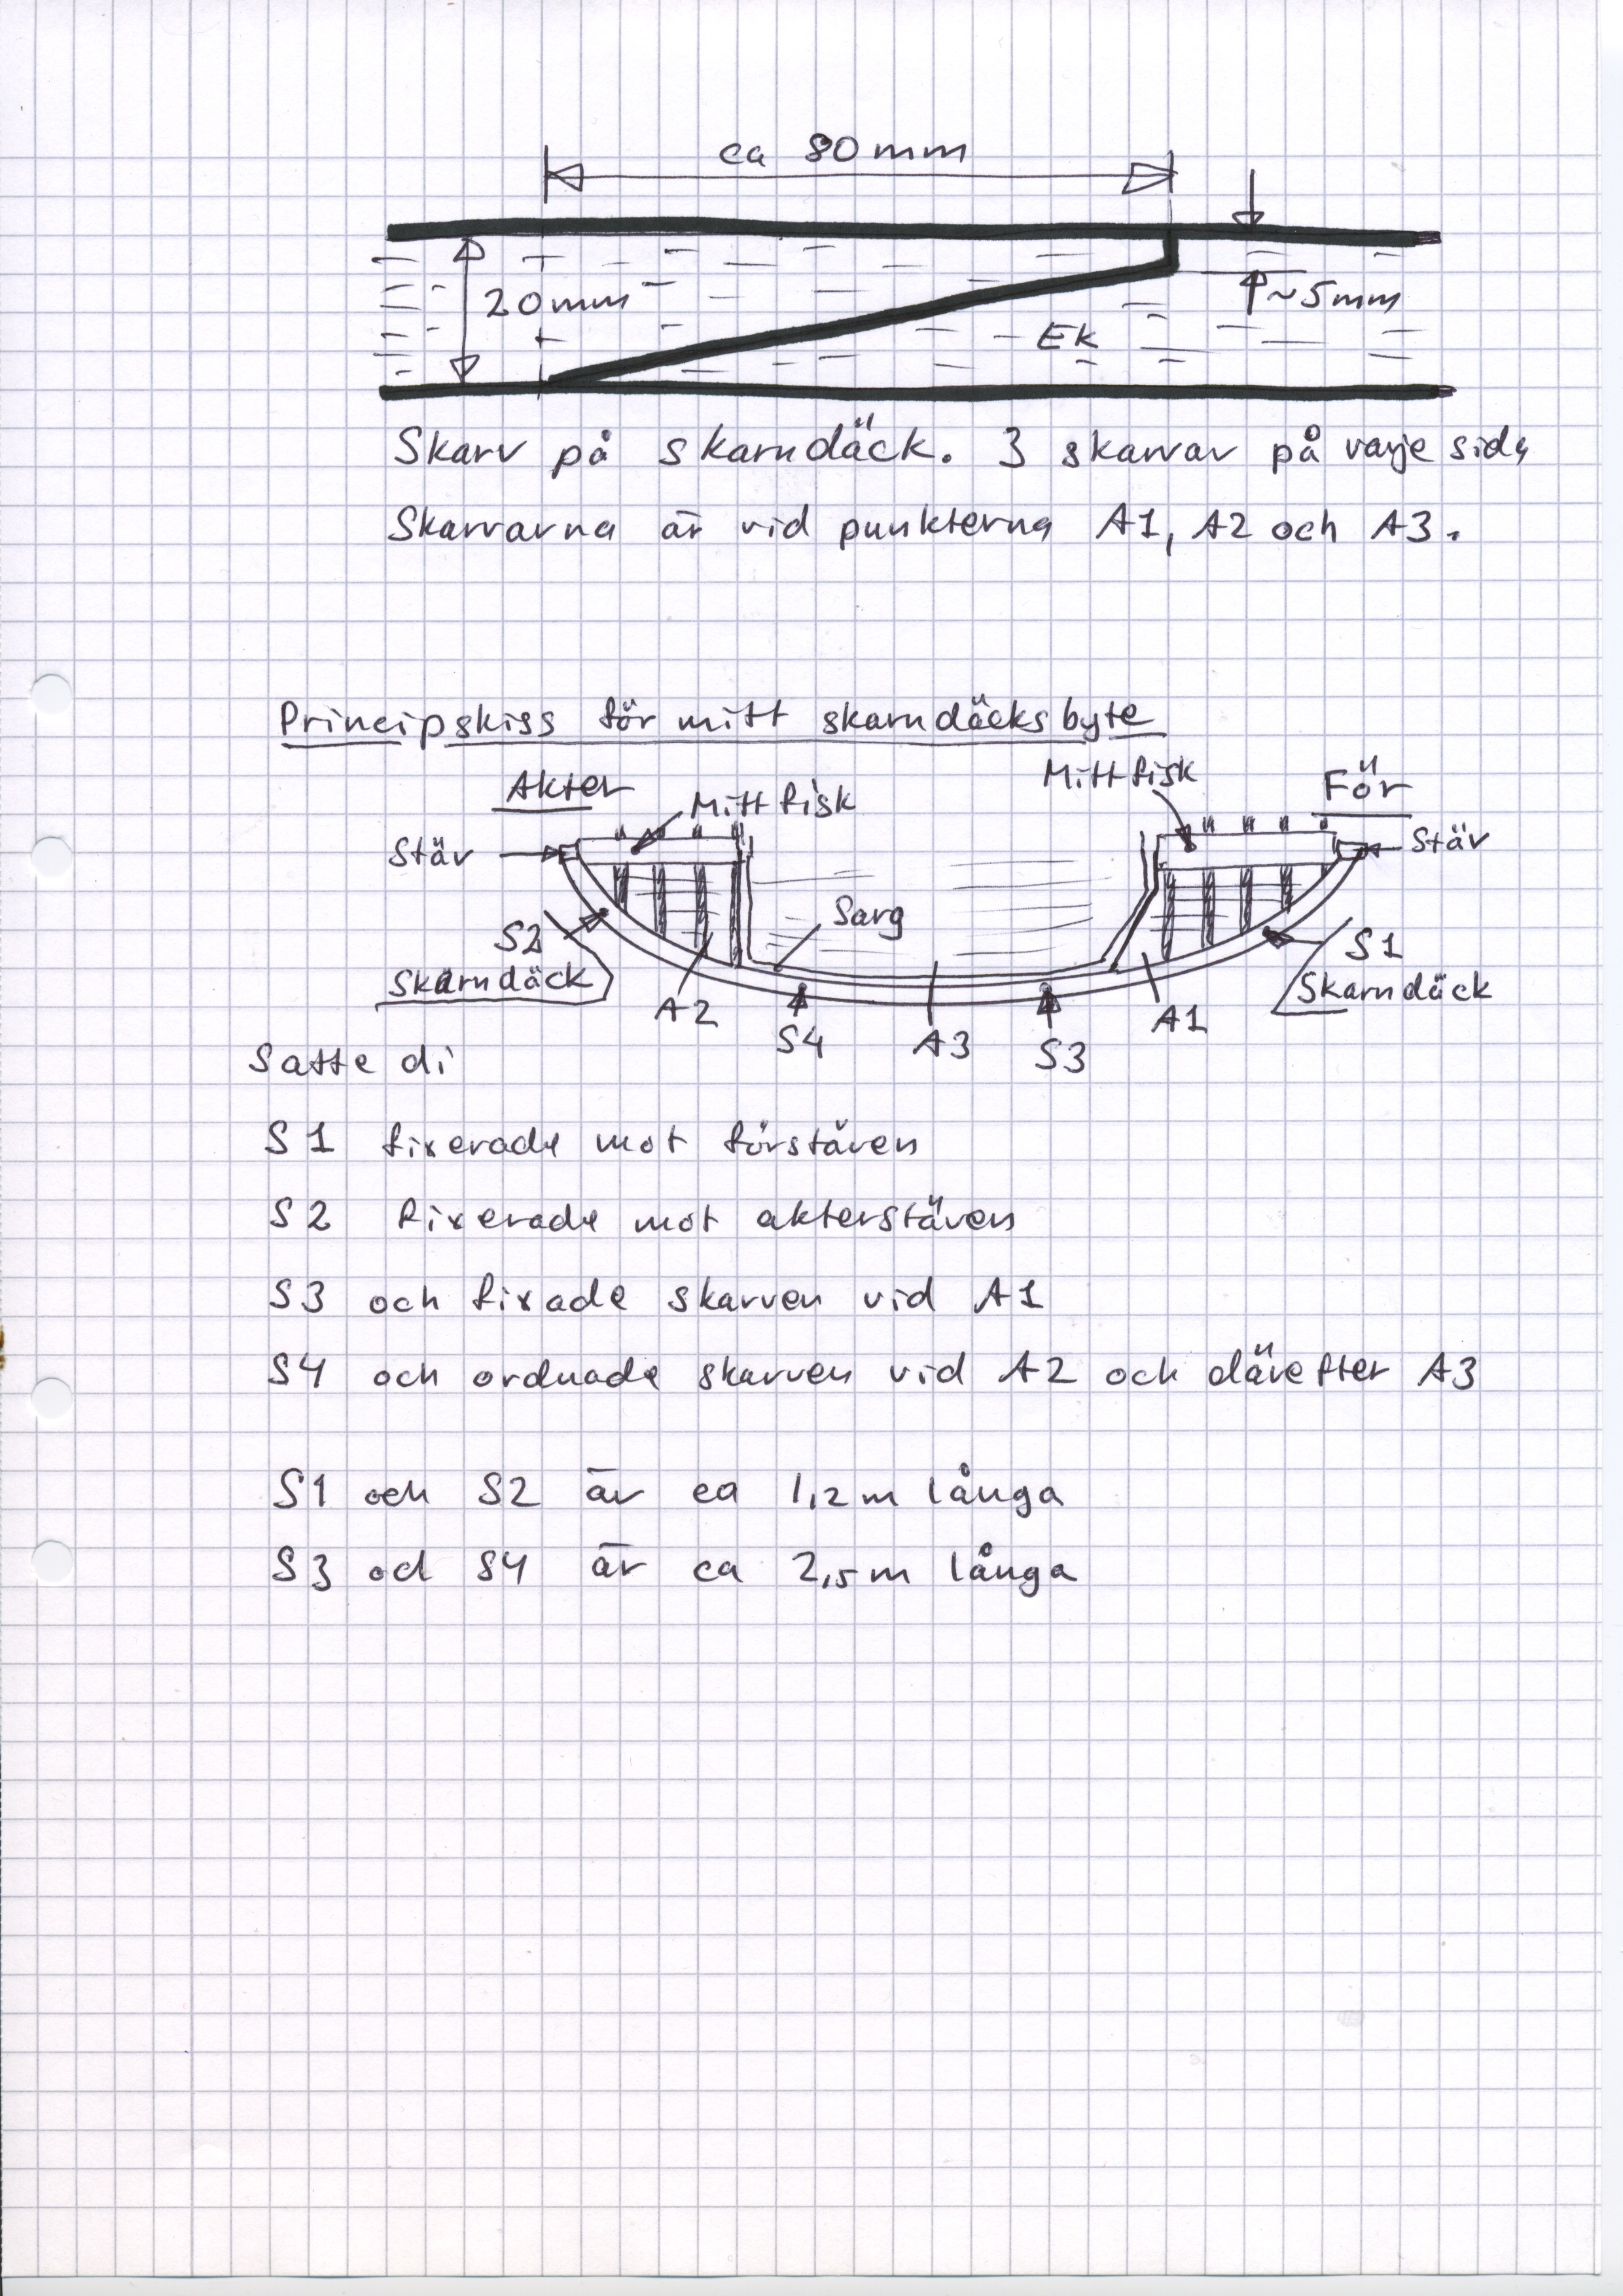 ca 80 mm
20 mm
~5 mm
Ek
Skarv på skarndäck. 3 skarvar på varje sida
Skarvarna är vid punkterna A1, A2 och A3.
Principskiss för mitt skarndäcksbyte
Akter
Mittfisk
Mittfisk
För
Stäv
Stäv
Sarg
S2
Skarndäck
S1
Skarndäck
A2
S4
A3
S3
A1
Satte di
S1 fixerade mot förstäven
S2 fixerade mot akterstäven
S3 och fixade skarven vid A1
S4 och ordnade skarven vid A2 och därefter A3
S1 och S2 är ca 1,2 m långa
S3 och S4 är ca 2,5 m långa